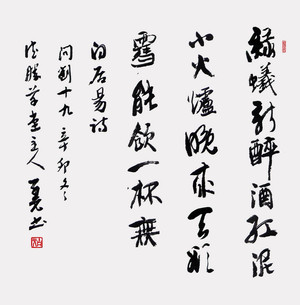 綠蟻新醅酒紅泥
小火爐晚來天欲
雪能飲一杯無
白居易詩
問劉十九 辛卯冬
草堂主人